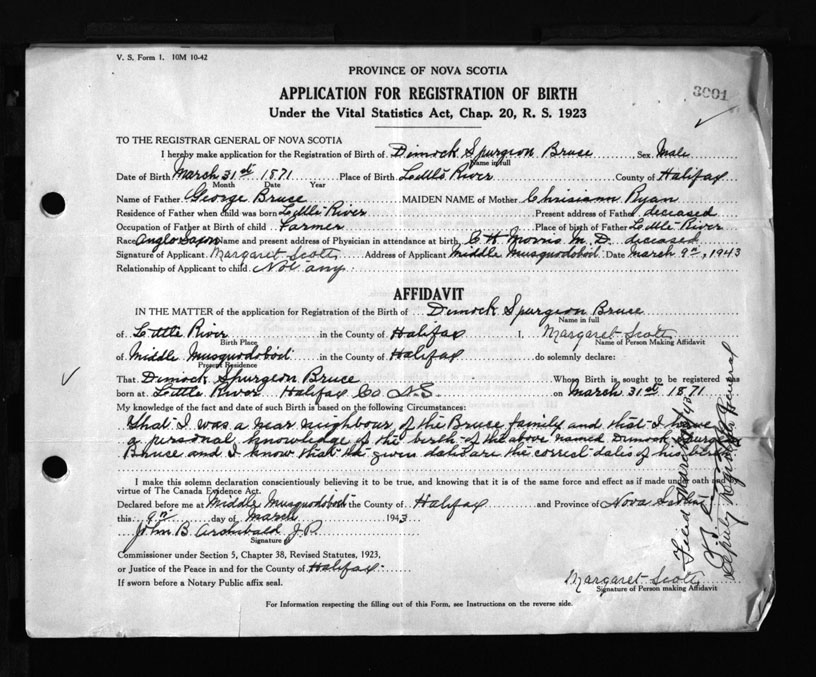 V. S. Form 1. 10M 10-42
PROVINCE OF NOVA SCOTIA
3001
APPLICATION FOR REGISTRATION OF BIRTH
Under the Vital Statistics Act, Chap. 20, R. S. 1923
TO THE REGISTRAR GENERAL OF NOVA SCOTIA
I hereby make application for the Registration of Birth of Dimock Spurgeon Bruce Sex Male
Name in full
Date of Birth March 31st 1871 Place of Birth Little River County of Halifax
Month Date Year
Name of Father George Bruce MAIDEN NAME of Mother Chrisiann Ryan
Residence of Father when child was born Little River Present address of Father deceased
Occupation of Father at Birth of child Farmer Place of birth of Father Little River
Race Anglo Saxon Name and present address of Physician in attendance at birth C H Morris M. D. deceased
Signature of Applicant Margaret Scott Address of Applicant Middle Musquodoboit Date March 9th, 1943
Relationship of Applicant to child Not any.
AFFIDAVIT
IN THE MATTER of the application for Registration of the Birth of Dimock Spurgeon Bruce
Name in full
of Little River in the County of Halifax I, Margaret Scott
Birth Place Name of Person Making Affidavit
of Middle Musquodoboit in the County of Halifax do solemnly declare:
Present Residence
That Dimock Spurgeon Bruce Whose Birth is sought to be registered was
born at Little River Halifax Co N.S. on March 31st 1871
My knowledge of the fact and date of such Birth is based on the following Circumstances:
That I was a near neighbour of the Bruce family and that I have
a personal knowledge of the birth of the above named Dimock Spurgeon
Bruce and I know that the given dates are the correct dates of his birth
I make this solemn declaration conscientiously believing it to be true, and knowing that it is of the same force and effect as if made under oath and
virtue of The Canada Evidence Act.
Declared before me at Middle Musquodoboit the County of Halifax and Province of Nova Scotia
this 9th day of March 1943
John B. Archibald J.P.
Signature of
Commissioner under Section 5, Chapter 38, Revised Statutes, 1923,
or Justice of the Peace in and for the County of Halifax.
If sworn before a Notary Public affix seal.
Margaret Scott
Signature of Person making Affidavit
For Information respecting the filling out of this Form, see Instructions on the reverse side.
Deputy Registrar General